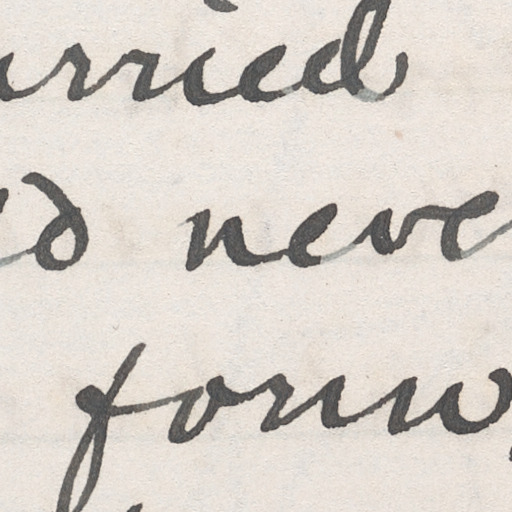 urried
d never
forw